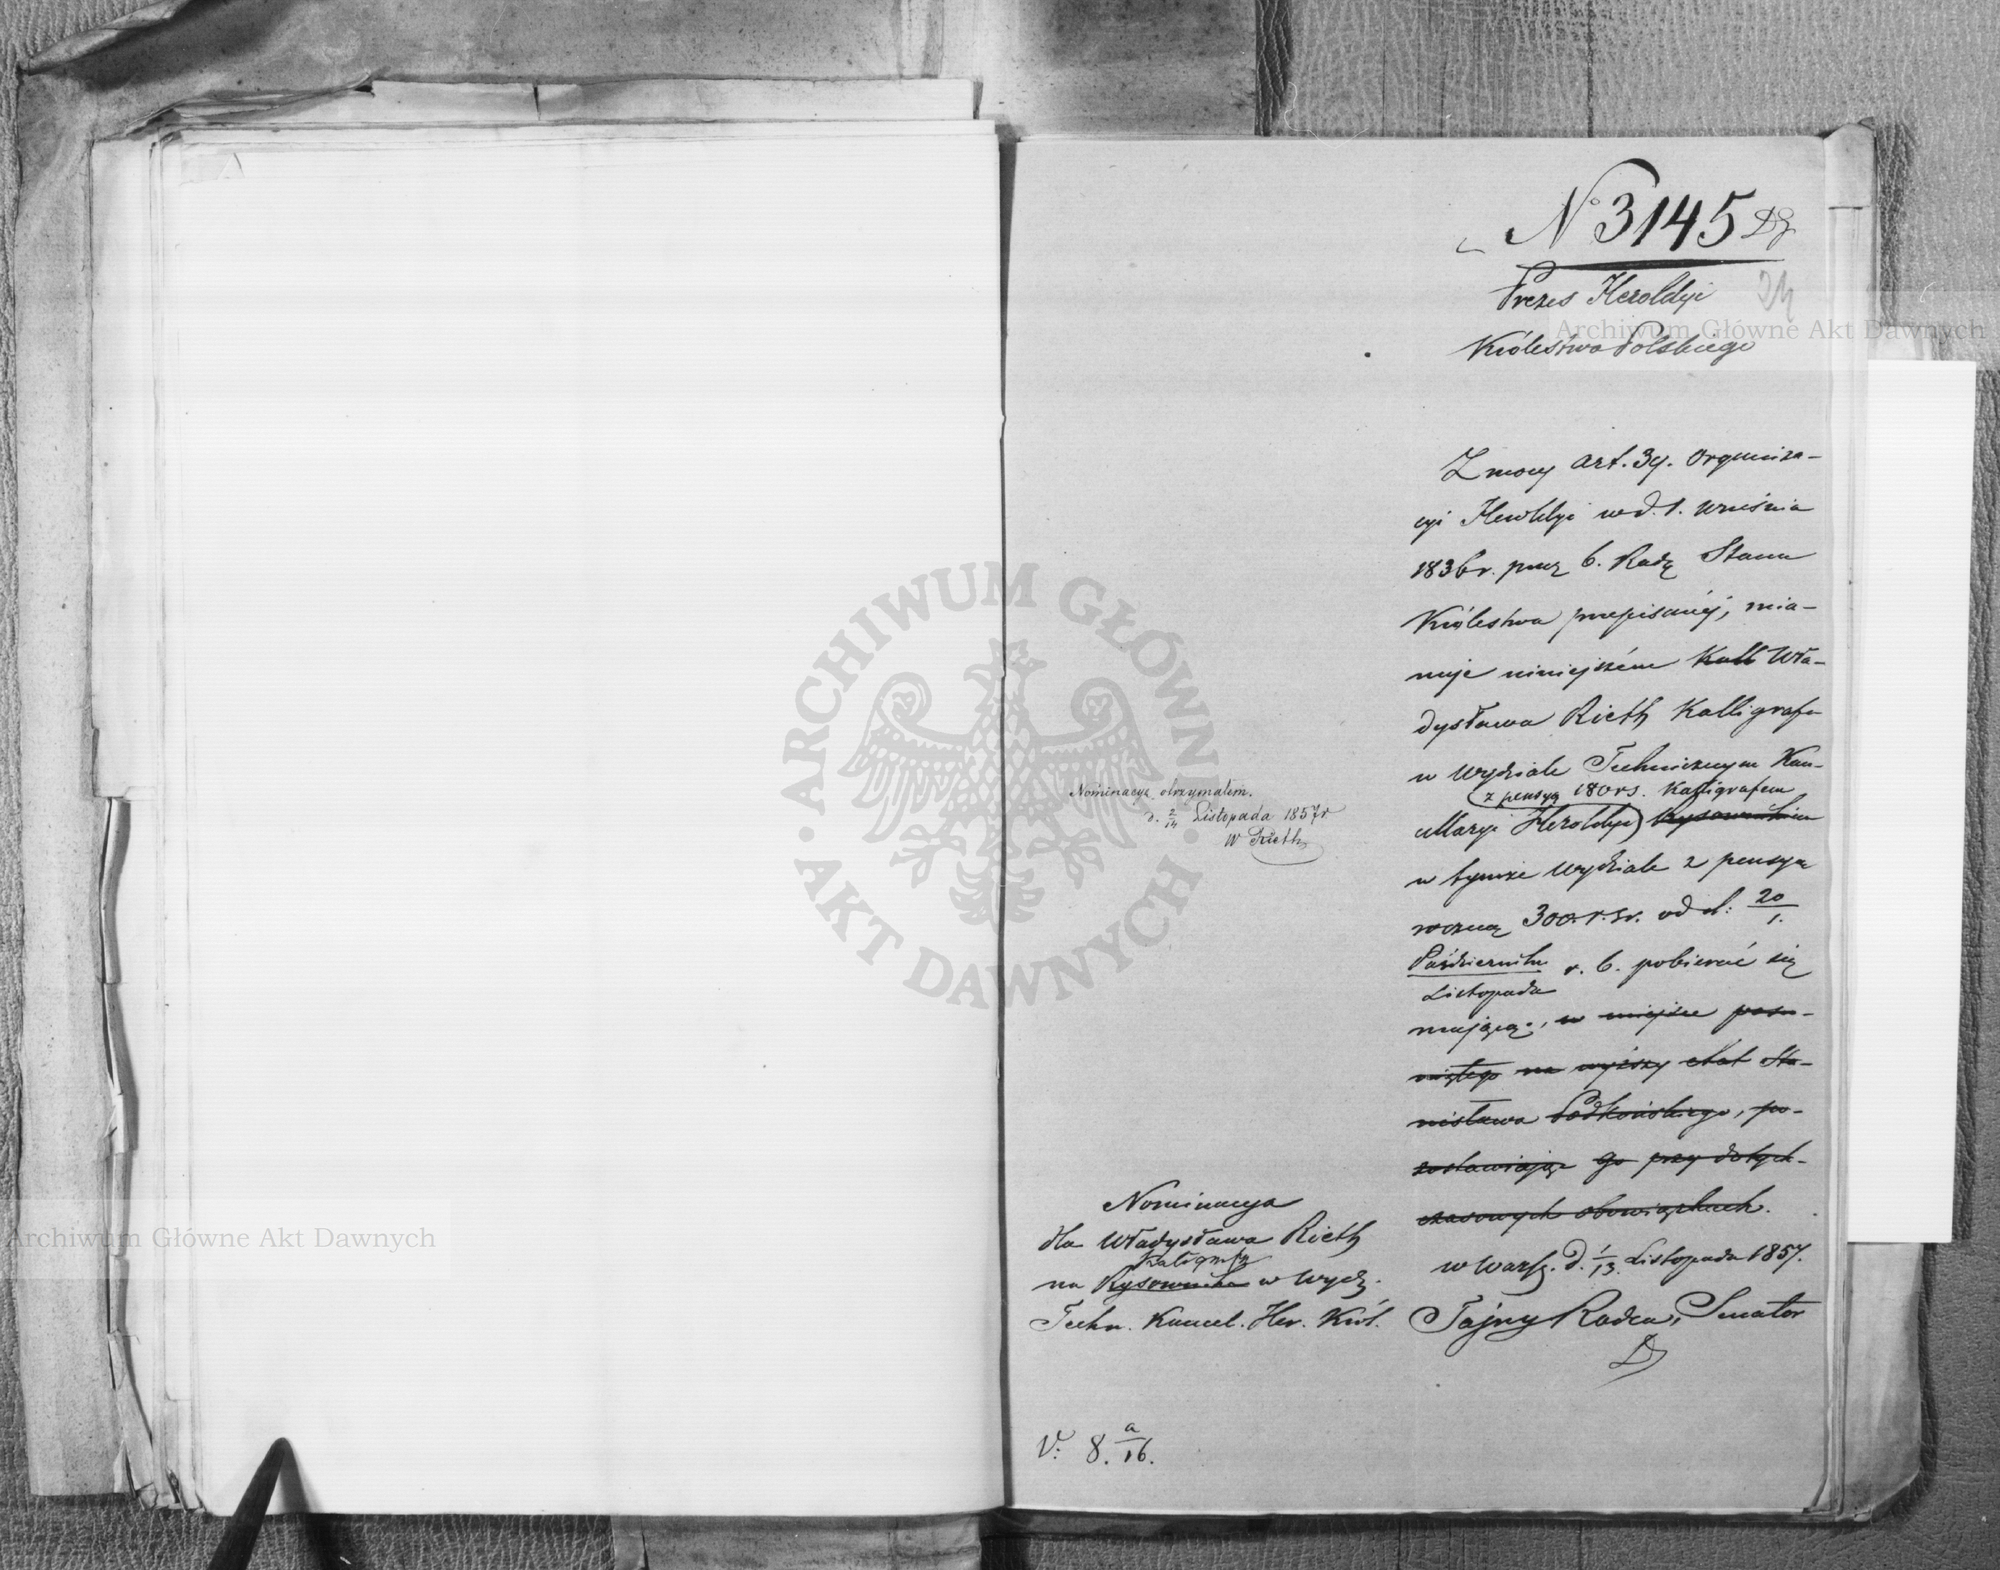 № 3145 DG
24
Prezes Heroldyi
Królestwa Polskiego
Z mocy art. 34. Organiza-
cyi Heroldyi w d. 1. września
1836 r. przez b. Radę Stanu
Królestwa przepisanéj, mia-
nuje niniejszém Kall Wła-
dysława Rieth Kalligrafa
w Wydziale Technicznym Kan-
z pensyą 180 rs. Kalligrafem
cellaryi Heroldyi Rysownikiem
w tymże Wydziale z pensyą
roczną 300. r. sr. od d: 20/1.
Października/Listopada r. b. pobierać się
mającą, w miejsce posu-
niętego na wyższy etat Sta-
nisława Podkońskiego, po-
zostawiając go przy dotych-
czasowych obowiązkach.
w Warsz. d. 1/13. Listopada 1857.
Tajny Radca, Senator
Nominacyę otrzymałem.
d. 2/14 Listopada 1857 r
W Rieth
Nominacya
dla Władysława Rieth
Kaligrafa
na Rysownika w Wydz.
Techn. Kancel. Her. Król.
V: 8. a/16.
Archiwum Główne Akt Dawnych
Archiwum Główne Akt Dawnych
ARCHIWUM GŁÓWNE AKT DAWNYCH